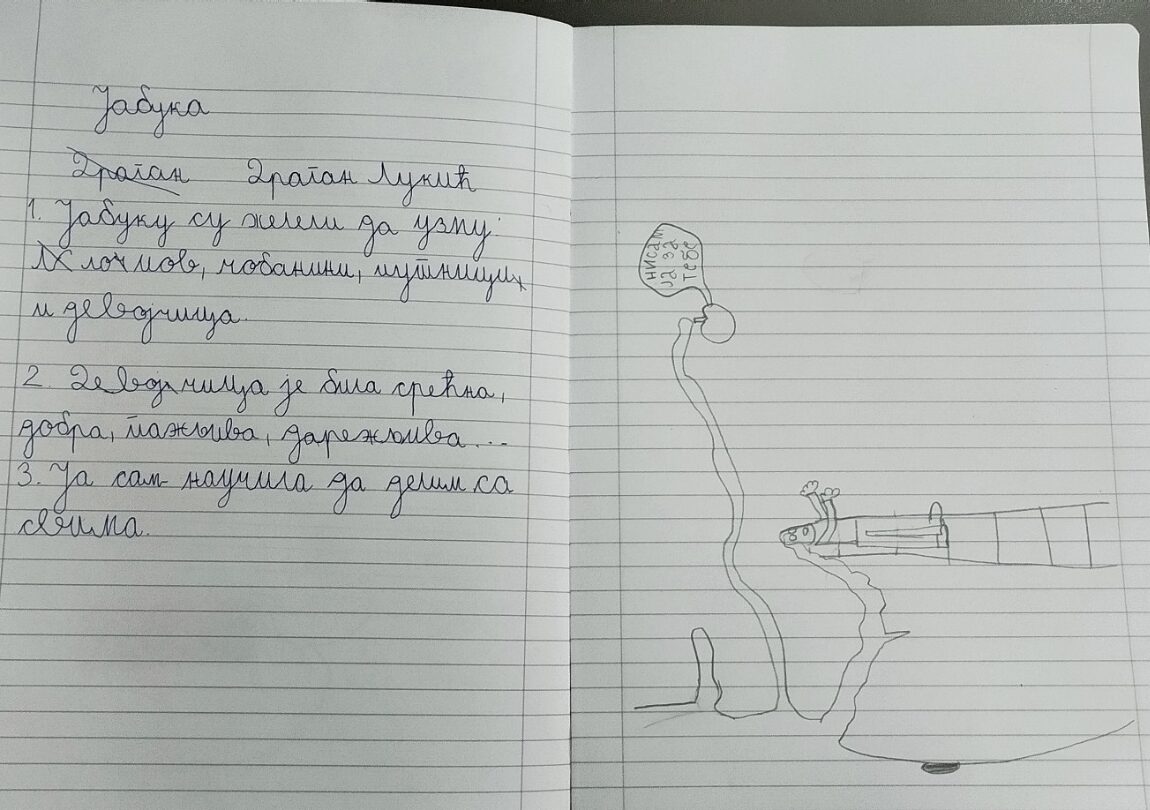 Јабука
Драган Драган Лукић
1. Јабуку су желели да узму:
чобанини, путници
и девојчица.
2. Девојчица је била срећна,
добра, пажљива, дарежљива...
3. Ја сам научила да делим са
свима.
НИСАМ
ЈА ЗА
ТЕБЕ